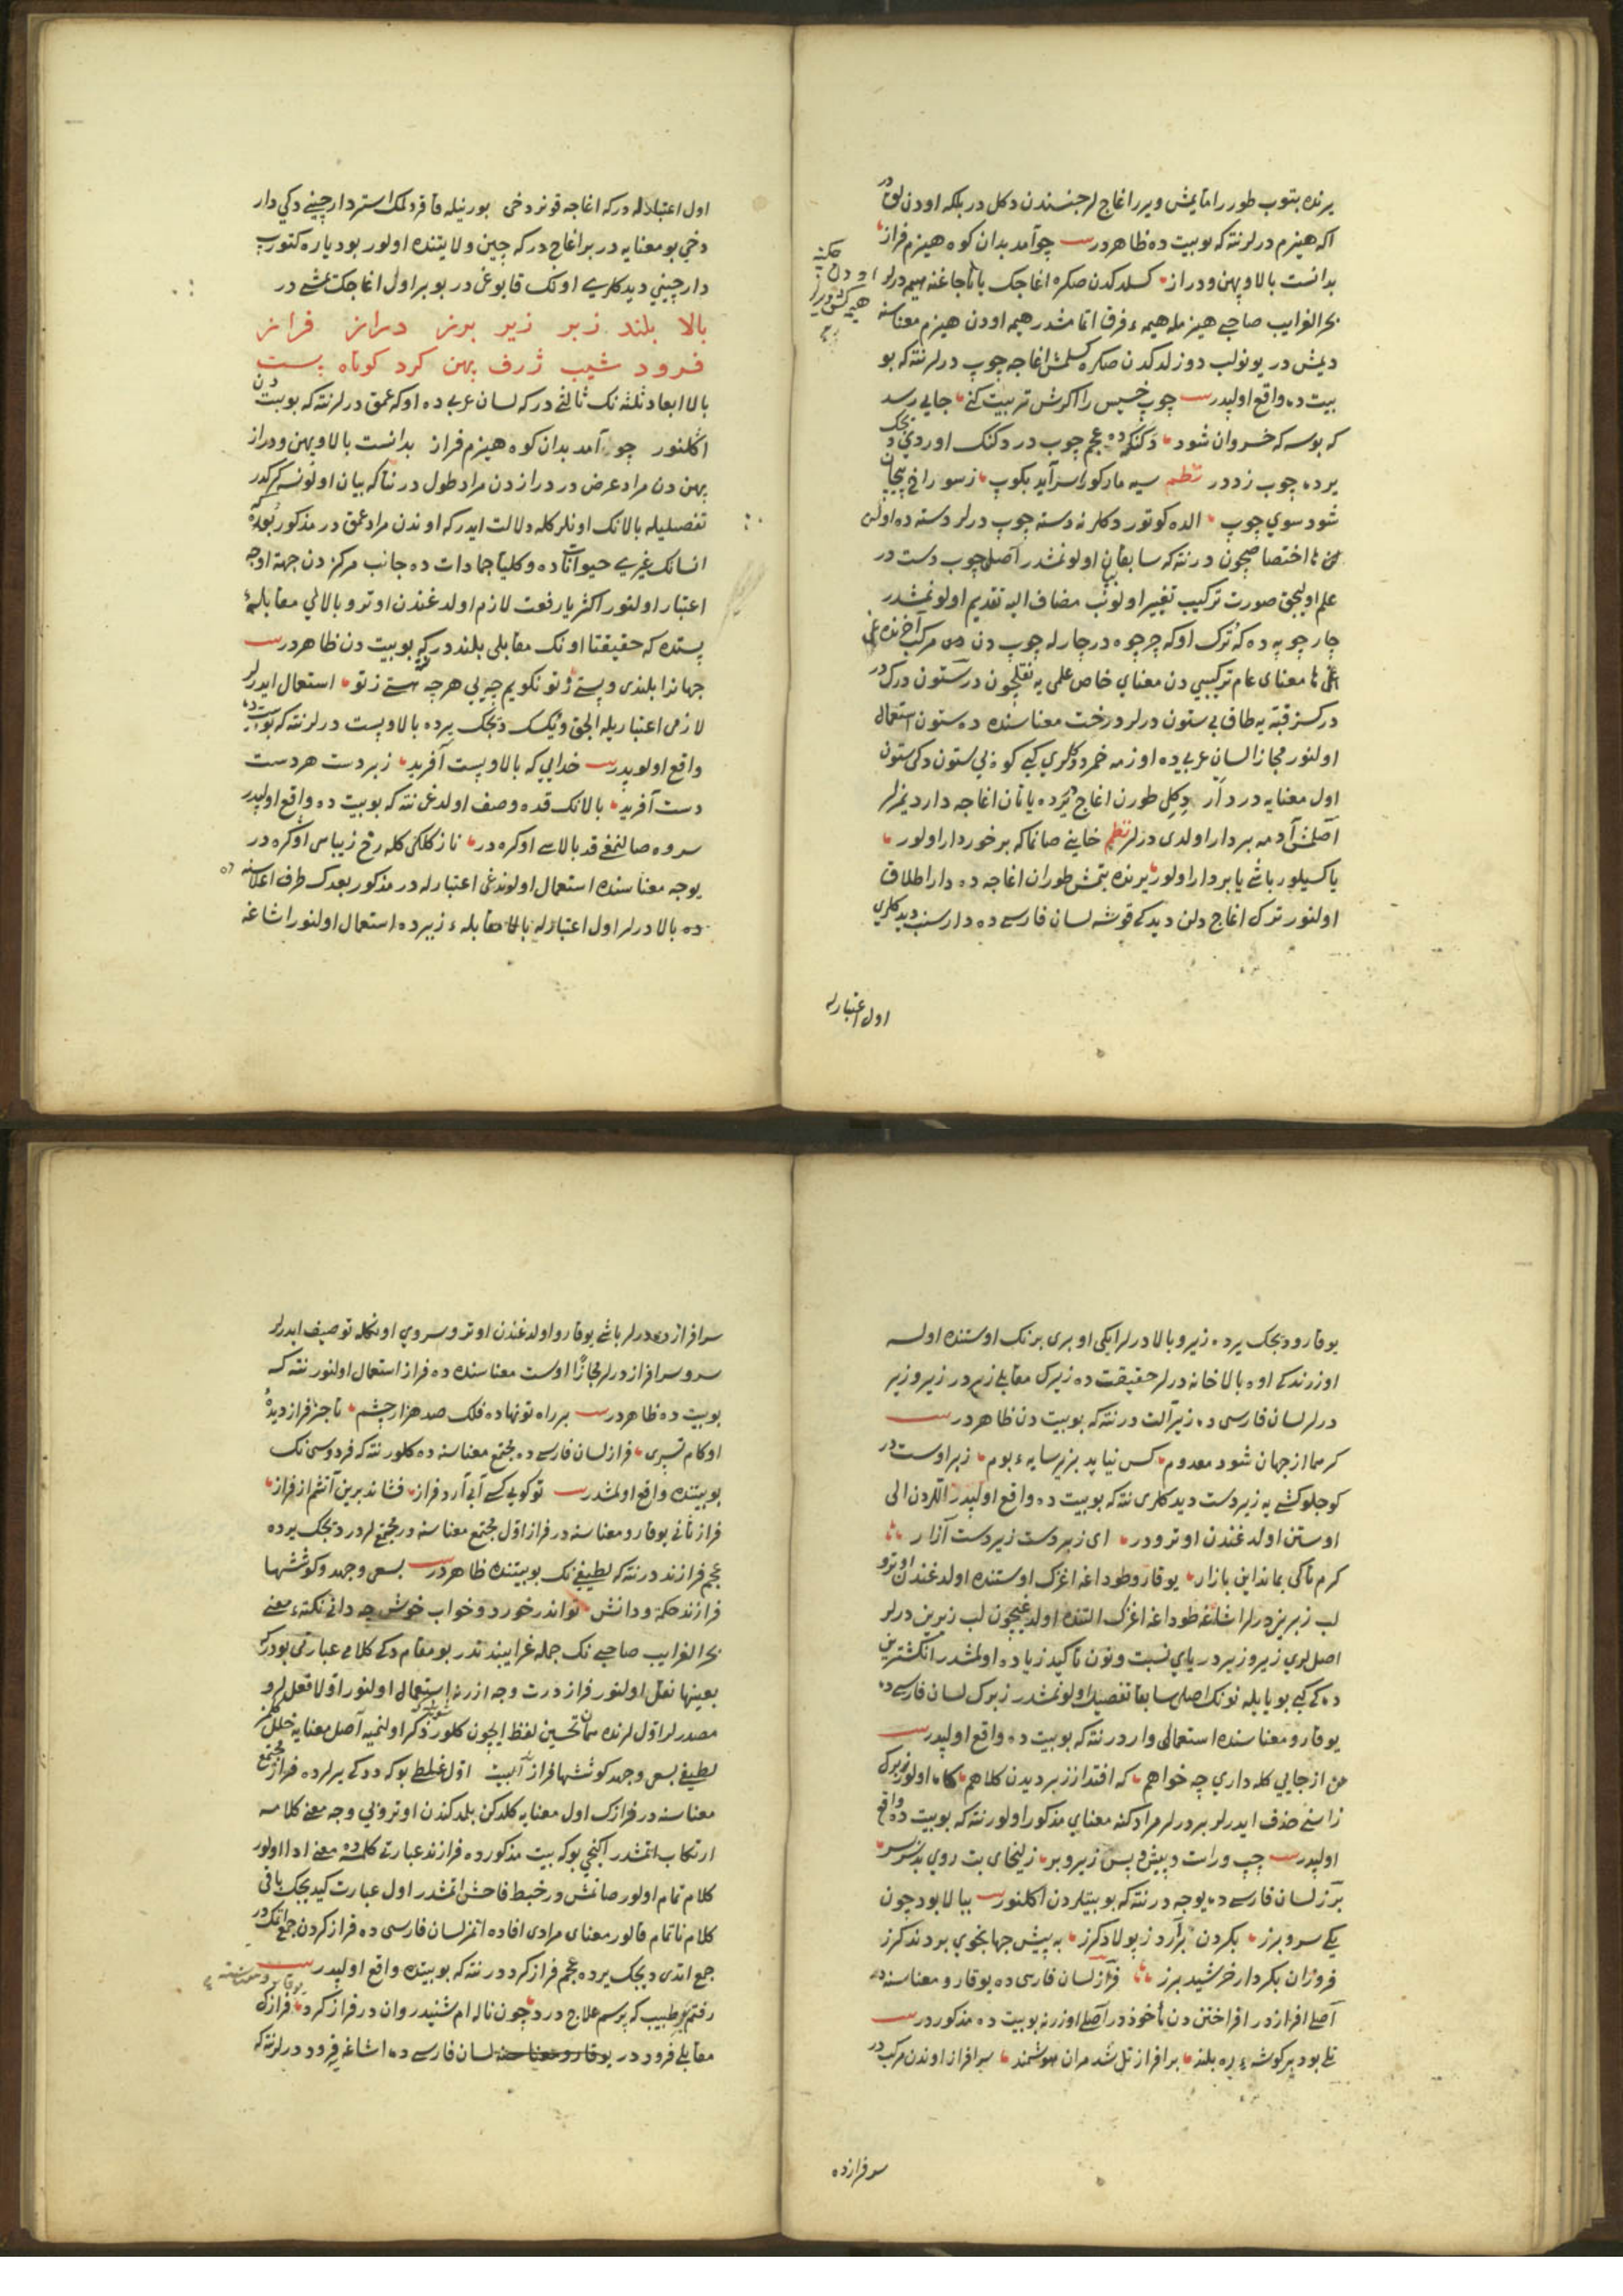 یرنده بتوب طورر امایمش ویرر اغاج لر جنسندن دکل در بلکه اودن لوق در
اکه هیزم درلر نته که بو بیت ده ظاهر در چو آمد بدان کوه هیزم فراز
بدانست بالا و پهن و دراز کسلدکدن صکره اغاجک
بحر الغرایب صاحبی هیزمله هیمه فرق اتمامشدر هیمه اودن هیزم معناسنه
دیمش در یونولب دوزلدکدن صکره کسلمش اغاجه چوب درلر نته که بو
بیت ده واقع اولپدر چوب خسیس را اکرش تربیت کنی جایی رسد
که بوسه که خسروان شود دکنک ده عجم چوب در دکنک اوردی دیجک
یرده چوب زد در نظم سیه مار کورا سر آید بکوب ز سوراخ پیچان
شود سوی چوب الده کوتوردکلرنه دسته چوب درلر دسته ده اولن
اختصاصیچون در نته که سابقا بیان اولونمشدر اصلی چوب دست در
علم اولیجق صورت ترکیب تغییر اولونب مضاف الیه تقدیم اولونمشدر
چارچوبه ده که ترک اوکه چرچوه در چارله چوب دن مرکب
معنای عام ترکیبی دن معنای خاص علمی یه نقلیچون در ستون درک در
درکسز قبه یه طاق بی ستون درلر درخت معناسنده ده ستون استعمال
اولنور مجازا لسان عربیده اوزمه خمر دیدکلری کبی کوه بی ستون دکی ستون
اول معنایه در دار دکیلی طورن اغاج در یرده یاتان اغاجه دار دیمزلر
آصلمش آدمه بردار اولدی درلر نظم خاینی صانما که برخوردار اولور
یا کسیلور باشی یا بردار اولور یرنده بتمش طوران اغاجه ده دار اطلاق
اولنور ترک اغاج دلن دیدکی قوشه لسان فارسی ده دارسنب دیدکلری
حکیه
اودن
هیمه کش
اول اعتبارله
اول اعتبارله در که اغاجه قونر دخی بورنیله قاقر دلمک استر دارچینی دکی دار
دخی بو معنایه در بر اغاج در که چین ولایتنده اولور بو دیاره کتورب
دارچینی دیدکلری اونک قابوغی در بو بر اول اغاجک میشی در
بالا بلند زبر زیر برز دراز فراز
فرود شیب ژرف پهن کرد کوتاه پست
بالا ابعاد ثلثه نک ثالثی در که لسان عربی ده اوکه عمق درلر نته که بو بیت دن
اکلنور چو آمد بدان کوه هیزم فراز بدانست بالا و پهن و دراز
پهن دن مراد عرض در درازدن مراد طول در نتاکه بیان اولونسه کرکدر
تفصیلیله بالانک اونلرکله دلالت ایدر که اوندن مراد عمق در مذکور بعد
انسانک غیری حیواناتده و کلیا جماداتده جانب مرکزدن جهة اوجه
اعتبار اولنور اکثریا رفعت لازم اولدغندن اوترو بالایی مقابله
پستده که حقیقتا اونک مقابلی بلنددر که بو بیت دن ظاهر در
جهانرا بلندی و پستی تو تو نکویم چه یی هرچه هستی ز تو استعمال ایدرلر
لازمی اعتباریله الجق و یکسک دیجک یرده بالا و پست درلر نته که بو بیت ده
واقع اولوپدر خدایی که بالا و پست آفرید زبردست هر دست
دست آفرید بالانک قده وصف اولدغی نته که بو بیت ده واقع اولپدر
سروه صالنمغی قد بالاسی اوکره در ناز کلکی کله رخ زیباسی اوکره در
یوجه معناسنده استعمال اولوندغی اعتبارله در مذکور بعدک طرف اعلاسنه ده
ده بالا درلر اول اعتبارله بالا مقابله زیرده استعمال اولنور اشاغه
یوقارو دیجک یرده زیر و بالا درلر ایکی اوی بری برنک اوستنده اولسه
اوزرندکی اوه بالا خانه درلر حقیقت ده زیرک مقابلی زبر در زیر و زبر
درلر لسان فارسی ده زیر آلت در نته که بو بیت دن ظاهر در
کر هما از جهان شود معدوم کس نیاید بزیر سایه بوم زبر اوست در
کوجلو کشی یه زبردست دیدکلری نته که بو بیت ده واقع اولپدر اللردن الی
اوستن اولدغندن اوترو در ای زبردست زیردست آزار
کرم تا کی بماند این بازار یوقارو طوداغه اغزک اوستنده اولدغندن اوترو
لب زبرین درلر اشاغه طوداغه اغزک التنده اولدغیچون لب زیرین درلر
اصللری زیر و زبر در یای نسبت و نون تأکید زیاده اولمشدر انکشترین
ده کی کبی بو یایله نونک اصلی سابقا تفصیل اولونمشدر زبرک لسان فارسی ده
یوقارو معناسنده استعمالی وار در نته که بو بیت ده واقع اولپدر
من از جایی کله داری چه خواهم که افتد از زبر دیدن کلاهم کاه اولور زبرک
زاسنی حذف ایدرلر بر درلر مراد کنه معنای مذکور اولور نته که بو بیت ده واقع
اولپدر چپ و راست و پیش و پس زیر و بر زلیخای بت روی
برز لسان فارسی ده یوجه در نته که بو بیتلردن اکلنور ببالا بود چون
یکی سرو برز بکردن برآرد ز پولاد کرز به پیش جهانجوی بردند کرز
فروزان بکردار خرشید برز فراز لسان فارسی ده یوقارو معناسنه در
اصلی افراز در افراختن دن مأخوذ در اصلی اوزرنه بو بیت ده مذکور در
تلی بود برکوشه ره بلند بر افراز تل شد مران هوشمند سرافراز اوندن مرکب در
سرفرازده
سرافراز ده درلر باشی یوقارو اولدغندن اوترو سروی اونکله توصیف ایدرلر
سرو سرافراز درلر مجازا اوست معناسنده ده فراز استعمال اولنور نته که
بو بیت ده ظاهر در بر راه تو نهاده فلک صد هزار چشم تا جز فراز دیده
او کام نسپری فراز لسان فارسی ده مجتمع معناسنه ده کلور نته که فردوسی نک
بو بیتنده واقع اولمشدر تو کویی کسی آب آرد فراز فشاند برین آتشم از فراز
فراز ثانی یوقارو معناسنه در فراز اول مجتمع معناسنه در مجتمع لردر دیجک یرده
عجم فرازند در نته که لطیفی نک بو بیتنده ظاهر در بسعی و جهد و کوششها
فرازند حکمة و دانش تواند رخورد و خواب خوش چه دانی نکته معنی
بحر الغرایب صاحبی نک جمله غرایبندندر بو مقام دکی کلامی عبارتی بودر که
بعینها نقل اولنور فراز درت وجه اوزرنه استعمال اولنور اولا فعل لر و
مصدرلر اولرنده همان تحسین لفظ ایچون کلور ذکر اولنمیه اصل معنایه خلل کلمز
لطیفی بسعی و جهد کوششها فراز البیت اول غلطی بو که ددکی یرلرده فراز مجتمع
معناسنه در فرازک اول معنایه کلدکن بلمدکندن اوترو بی وجه معنی کلامه
ارتکاب اتمشدر اکنجی بو که بیت مذکورده فرازند عبارتی کلسه ده معنی ادا اولور
کلام تمام اولور صانمش در خبط فاحش اتمشدر اول عبارت کیدیجک باقی
کلام ناتمام قالور معنای مرادی افاده اتمز لسان فارسی ده فراز کردن جمع اتمک در
جمع اتدی دیجک یرده عجم فراز کرد در نته که بو بیتده واقع اولپدر
رفتم بر طبیب که پرسم علاج درد چون ناله ام شنید روان در فراز کرد فرازک
مقابلی فرود در یوقارو معناسنه لسان فارسی ده اشاغه فرود درلر نته که
یوقارو معناسنه